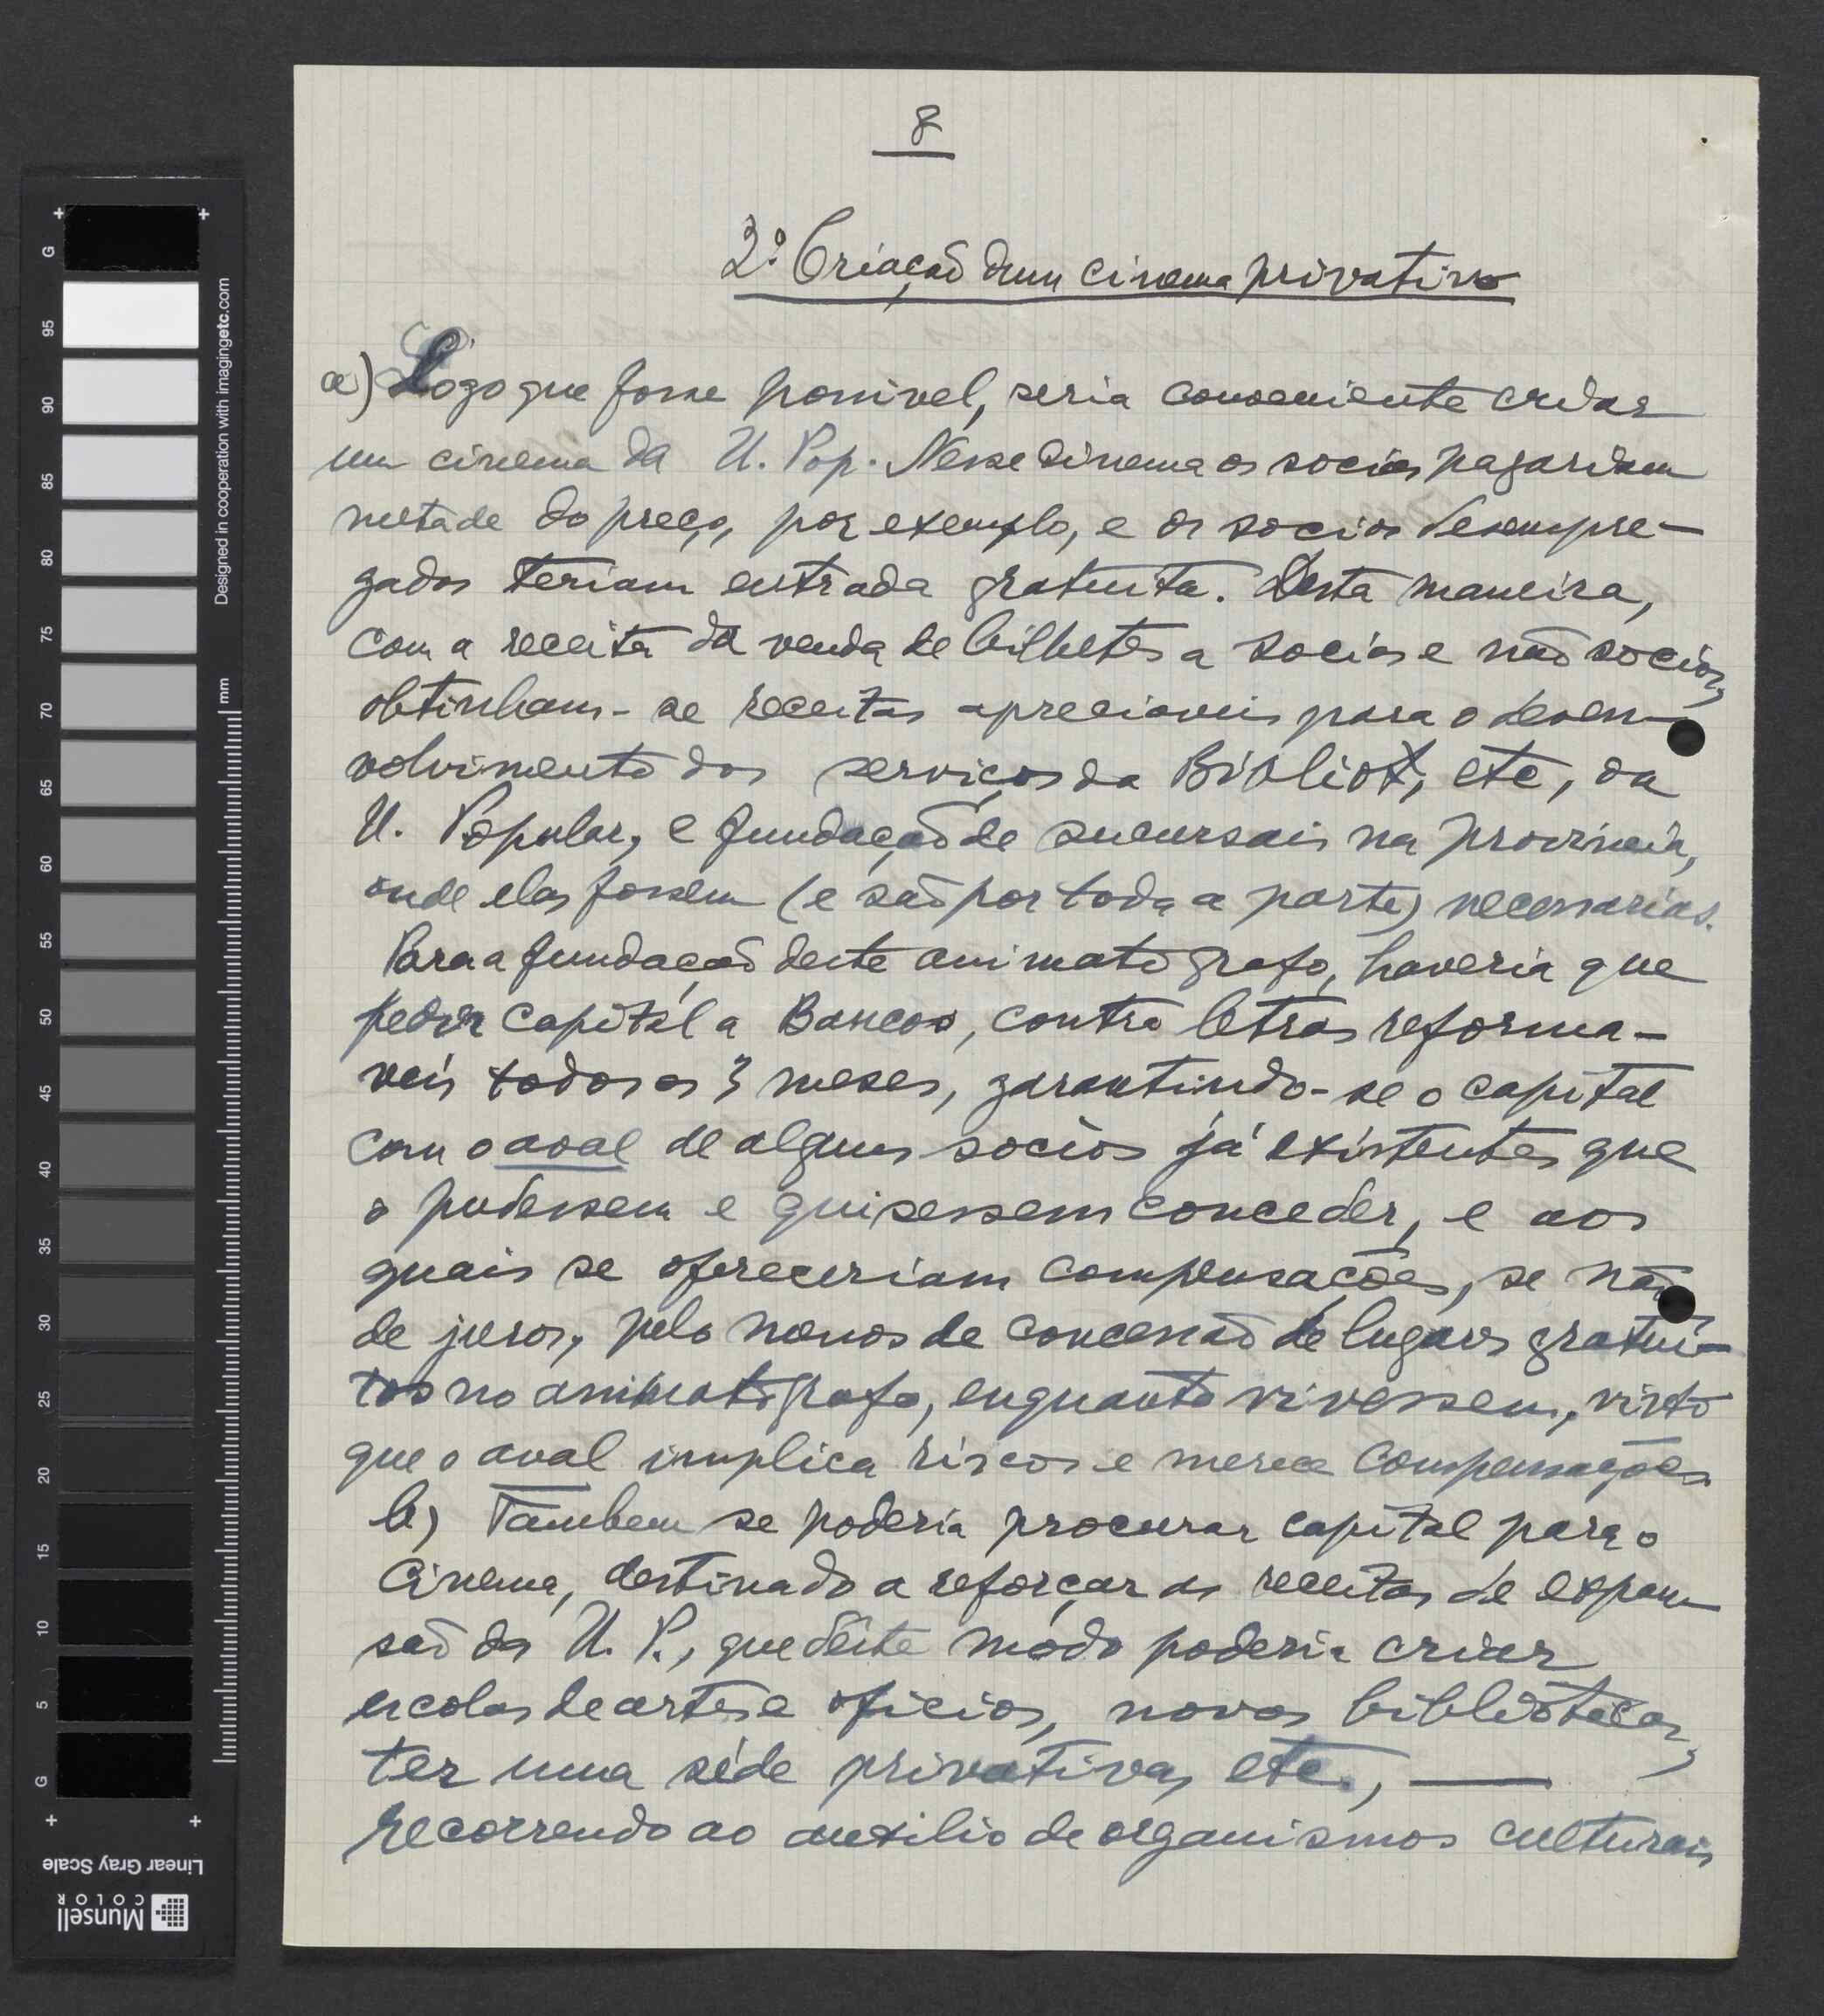 8
2º Criação dum cinema privativo
a) Logo que fosse possivel, seria conveniente criar
um cinema da U. Pop. Nesse cinema os socios pagariam
metade do preço, por exemplo, e os socios desempre-
gados teriam entrada gratuita. Desta maneira,
com a receita da venda de bilhetes a socios e não socios,
obtinham-se receitas apreciaveis para o desen-
volvimento dos serviços da Bibliot, etc, da
U. Popular, e fundação de sucursais na provincia,
onde elas fossem (e são por toda a parte) necessarias.
Para a fundação deste animatografo, haveria que
pedir capital a Bancos, contra letras reforma-
veis todos os 3 meses, garantindo-se o capital
com o aval de alguns socios já existentes que
o pudessem e quisessem conceder, e aos
quais se ofereceriam compensações, se não
de juros, pelo menos de concessão de lugares gratui-
tos no animatografo, enquanto vivessem, visto
que o aval implica riscos e merece compensações
b) Tambem se poderia procurar capital para o
Cinema, destinado a reforçar as receitas de expan-
saõ da U. P., que dêste módo poderia criar
escolas de artes e oficios, novas bibliotecas,
ter uma séde privativa, etc., —
recorrendo ao auxilio de organismos culturais
Designed in cooperation with imagingetc.com
mm
G 95 90 85 80 75 70 65 60 55 50 45 40 35 30 25 20 15 10 5 G
Linear Gray Scale
Munsell
COLOR